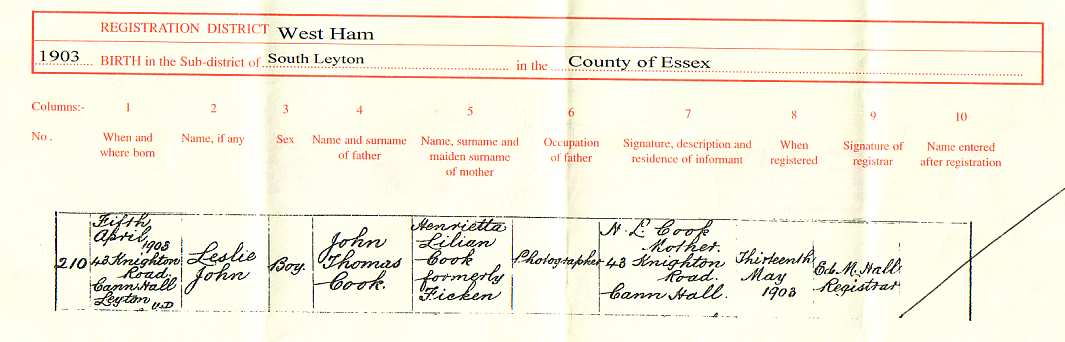 REGISTRATION DISTRICT West Ham
1903 BIRTH in the Sub-district of South Leyton in the County of Essex
Columns:- 1 2 3 4 5 6 7 8 9 10
No. When and where born Name, if any Sex Name and surname of father Name, surname and maiden surname of mother Occupation of father Signature, description and residence of informant When registered Signature of registrar Name entered after registration
210
Fifth
April
1903
43 Knighton
Road.
Cann Hall
Leyton U.D
Leslie
John
Boy.
John
Thomas
Cook.
Henrietta
Lilian
Cook
formerly
Ficken
Photographer
H. L. Cook
Mother.
43 Knighton
Road.
Cann Hall.
Thirteenth
May
1903
Ed. M. Hall
Registrar